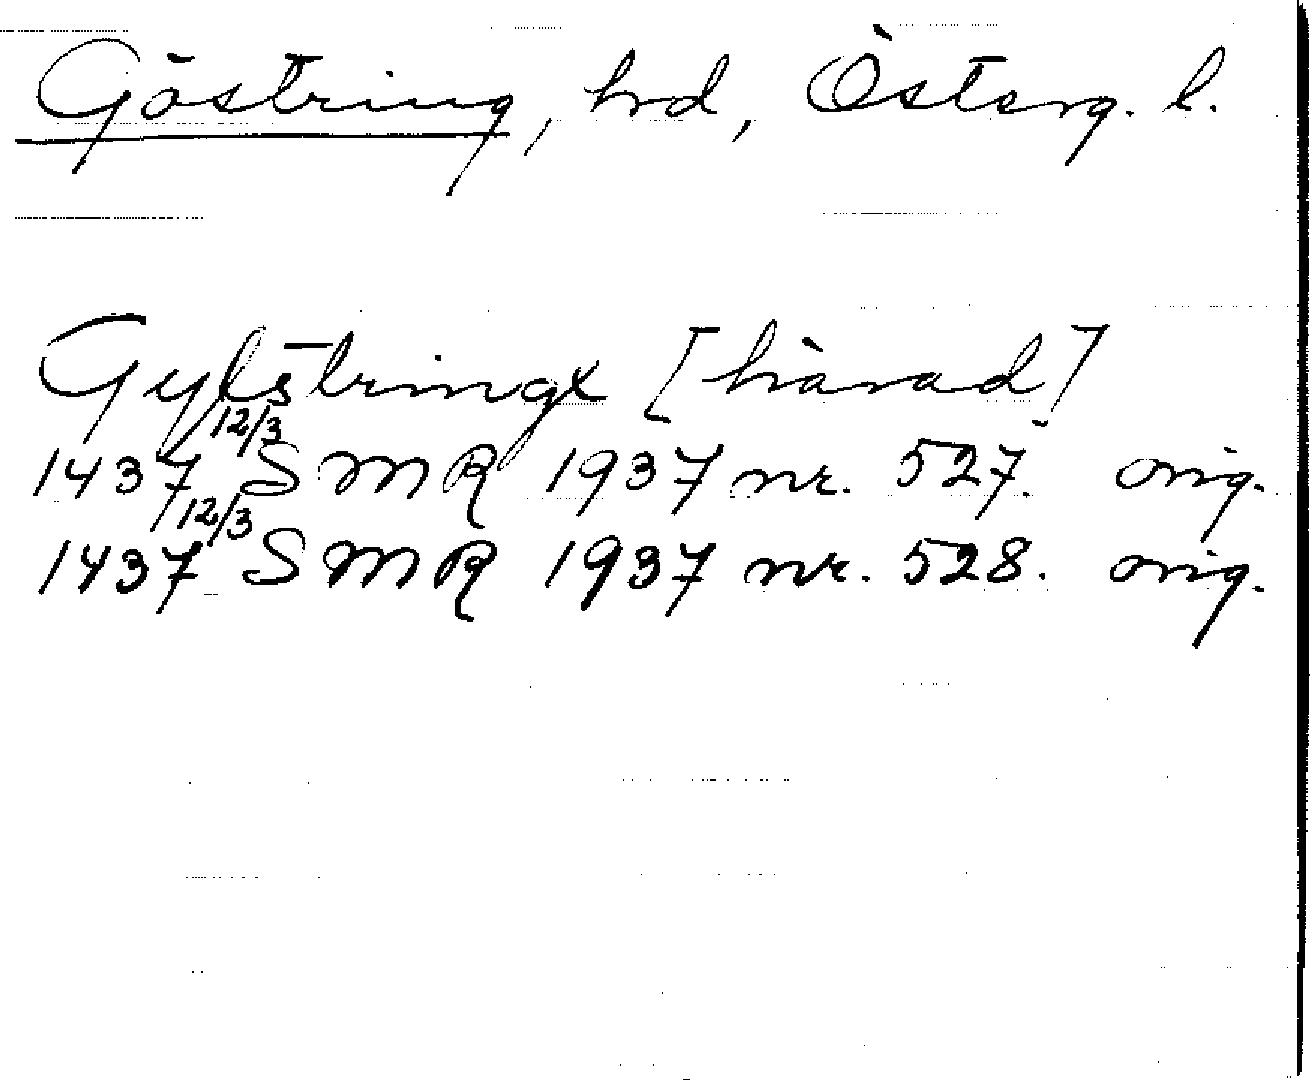 Göstring, hrd, Österg. l.
Gylstringx [härad]
1437 12/3 SMR 1937 nr. 527. orig.
1437 12/3 SMR 1937 nr. 528. orig.